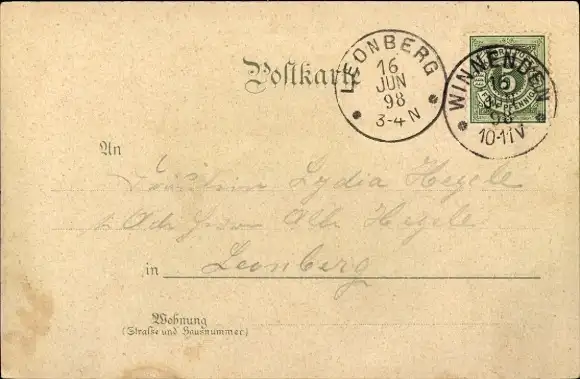 Postkarte
LEONBERG
16
JUN
98
3-4 N
WINNENDEN
16
JUN
98
10-11V
5
An
Fräulein Lydia Hegele
Hegele
in Leonberg
Wohnung
(Straße und Hausnummer)